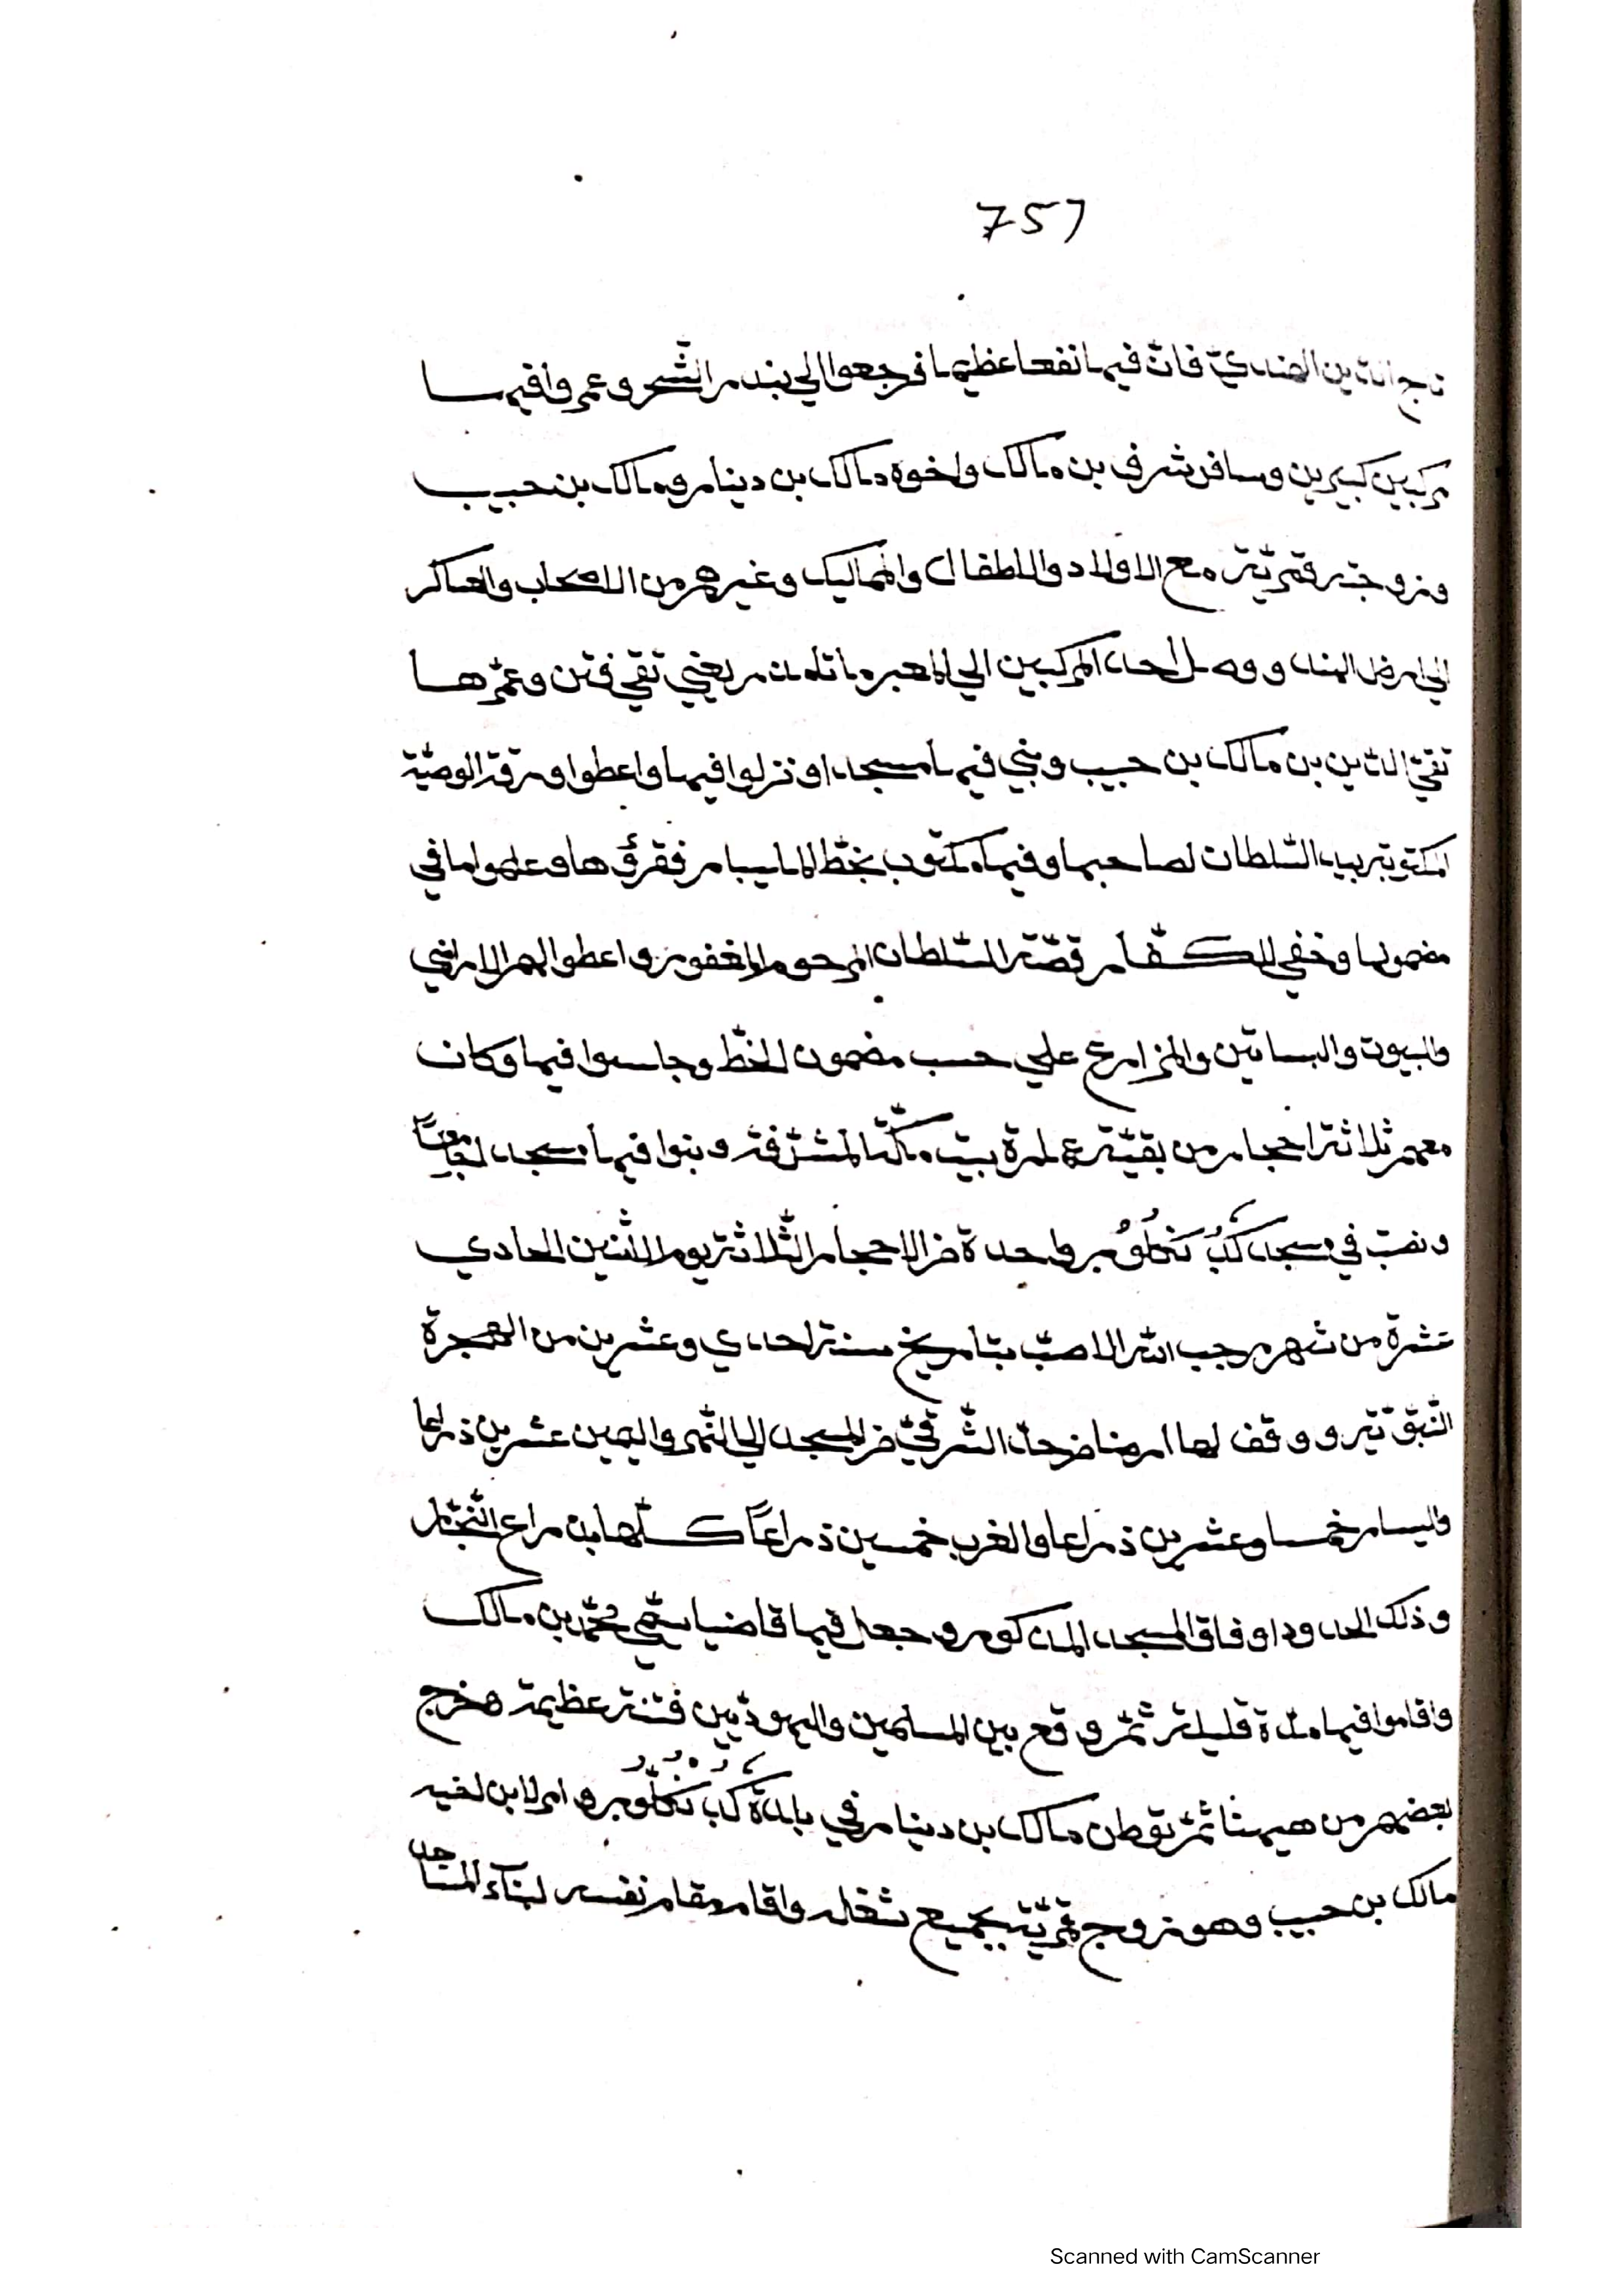 757
تاج الدّين الهنديّ فانّ فيها نفعا عظيما فرجعوا الي بندر الشّحر وعمروا فيها
مركبين كبيرين وسافر شرف بن مالك واخوه مالك بن دينار ومالك بن حبيب
وزوجته قمريّته مع الاولاد والاطفال والمماليك وغيرهم من الاصحاب والعساكر
الي ارض الهند ووصل احد المركبين الي المعبر يعني تقي فتن وعمّرها
تقيّ الدّين بن مالك بن حبيب وبني فيها مسجدا ونزلوا فيها واعطوا ورقة الوصيّة
المكتوبة بيد السّلطان لصاحبها وفيها مكتوب بخطّ المليبار فقرؤها وعلموا ما في
مضمونها وخفي للكفّار قصّة السّلطان المرحوم المغفور واعطوا لهم الاراضي
والبيوت والبساتين والمزارع علي حسب مضمون الخطّ وجلسوا فيها وكان
معهم ثلاثة احجار من بقيّة عمارة بيت مكّة المشرّفة وبنوا فيها مسجدا جامعًا
ونصب في مسجد كَدُنْكَلُّور واحدة من الاحجار الثّلاثة يوم الاثنين الحادي
عشرة من شهر رجب الله الاصبّ بتاريخ سنة احدي وعشرين من الهجرة
النّبويّة ووقف لها ارضا من حدّ الشّرقيّ من المسجد الي النّهر واليمين عشرين ذراعا
واليسار خمسا وعشرين ذراعا والغرب خمسين ذراعًا كلّها بذراع النّجّار
وذلك الحدود اوقاف المسجد المذكور وجعل فيها قاضيا سمّي محمّد بن مالك
واقاموا فيها مدّة قليلة ثمّ وقع بين المسلمين واليهوديّين فتنة عظيمة هخرج
بعضهم من هيهنا ثمّ توطن مالك بن دينار في بلدة كَدُنْكَلُّور وامر لابن اخيه
مالك بن حبيب وهو زوج قمريّة بجميع شغله واقام مقام نفسه لبناء المساجد
Scanned with CamScanner